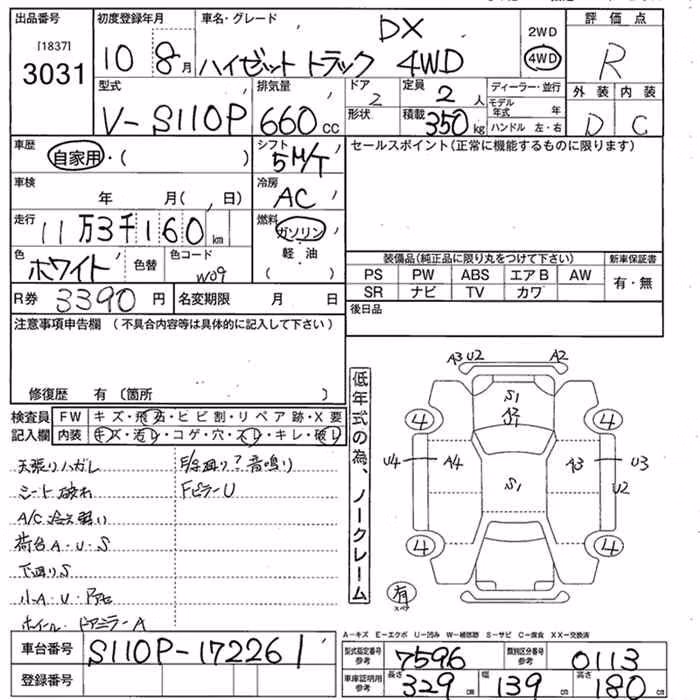 出品番号 初度登録年月 車名・グレード 2WD 評価点
[1837]
3031 10 8月 ハイゼット トラック DX 4WD 4WD R
型式 排気量 ドア 定員 ディーラー・並行 外装 内装
V-S110P 660cc 2 2人 モデル年式 年 D C
形状 積載 350kg ハンドル 左・右
車歴 自家用・( ) シフト 5M/T セールスポイント(正常に機能するものに限ります)
車検 年 月( , 日) 冷房 AC
走行 11万3千160km 燃料 ガソリン
軽油
( )
色 ホワイト 色替 色コード W09
装備品(純正品に限り丸をつけて下さい) 新車保証書
PS PW ABS エアB AW 有・無
SR ナビ TV カワ
R券 3390円 名変期限 月 日 後日品
注意事項申告欄(不具合内容等は具体的に記入して下さい)
修復歴 有〔箇所 〕
検査員 FW キズ・飛石・ヒビ割・リペア跡・X要
記入欄 内装 キズ・汚レ・コゲ・穴・スレ・キレ・破レ
天張りハガレ F/
シート破れ FピラーU
A/C冷え弱い 音鳴り
荷台A・U・S
下廻りS
小A・U・
ホイール・ドアミラーA
低年式の為、ノークレーム
A3 U2 A2
S1
A2
4 4
U4 A4 S1 A3 U3
U2
4 4
有
A-キズ E-エクボ U-凹み W-補修跡 S-サビ C-腐食 XX-交換済
車台番号 S110P-172261
登録番号
型式指定番号 参考 7596 類別区分番号 参考 0113
車庫証明用 参考 長さ 329cm 幅 139cm 高さ 180cm